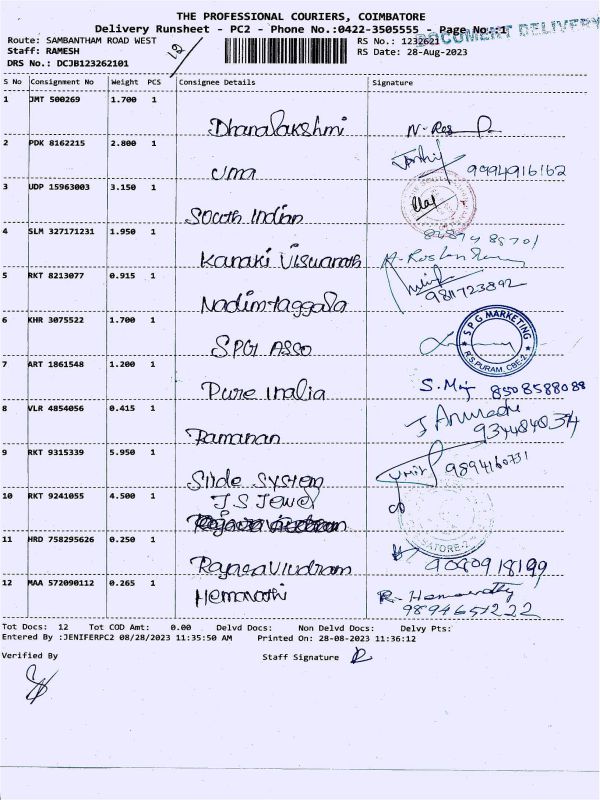 THE PROFESSIONAL COURIERS, COIMBATORE
Delivery Runsheet - PC2 - Phone No.:0422-3505555 - Page No.:1
DOCUMENT DELIVERY
Route: SAMBANTHAM ROAD WEST RS No.: 1232621
Staff: RAMESH RS Date: 28-Aug-2023
DRS No.: DCJB123262101
S No Consignment No Weight PCS Consignee Details Signature
1 JMT 500269 1.700 1
Dhanalakshmi
2 PDK 8162215 2.800 1
Uma 9994916162
3 UDP 15963003 3.150 1
South Indian
4 SLM 327171231 1.950 1
Kanaki Viswanath
5 RKT 8213077 0.915 1
9811723892
6 KHR 3075522 1.700 1
SPG ASSO
SPG MARKETING
R.S.PURAM, CBE-2
7 ART 1861548 1.200 1
Pure India 8508588088
8 VLR 4854056 0.415 1
Ramanan
9 RKT 9315339 5.950 1
Slide System 9894160731
10 RKT 9241055 4.500 1
J S Jewel
11 HRD 758295626 0.250 1
9090918199
12 MAA 572090112 0.265 1
Hemavathi R. Hemavathy
9894651222
Tot Docs: 12 Tot COD Amt: 0.00 Delvd Docs: Non Delvd Docs: Delvy Pts:
Entered By :JENIFERPC2 08/28/2023 11:35:50 AM Printed On: 28-08-2023 11:36:12
Verified By Staff Signature